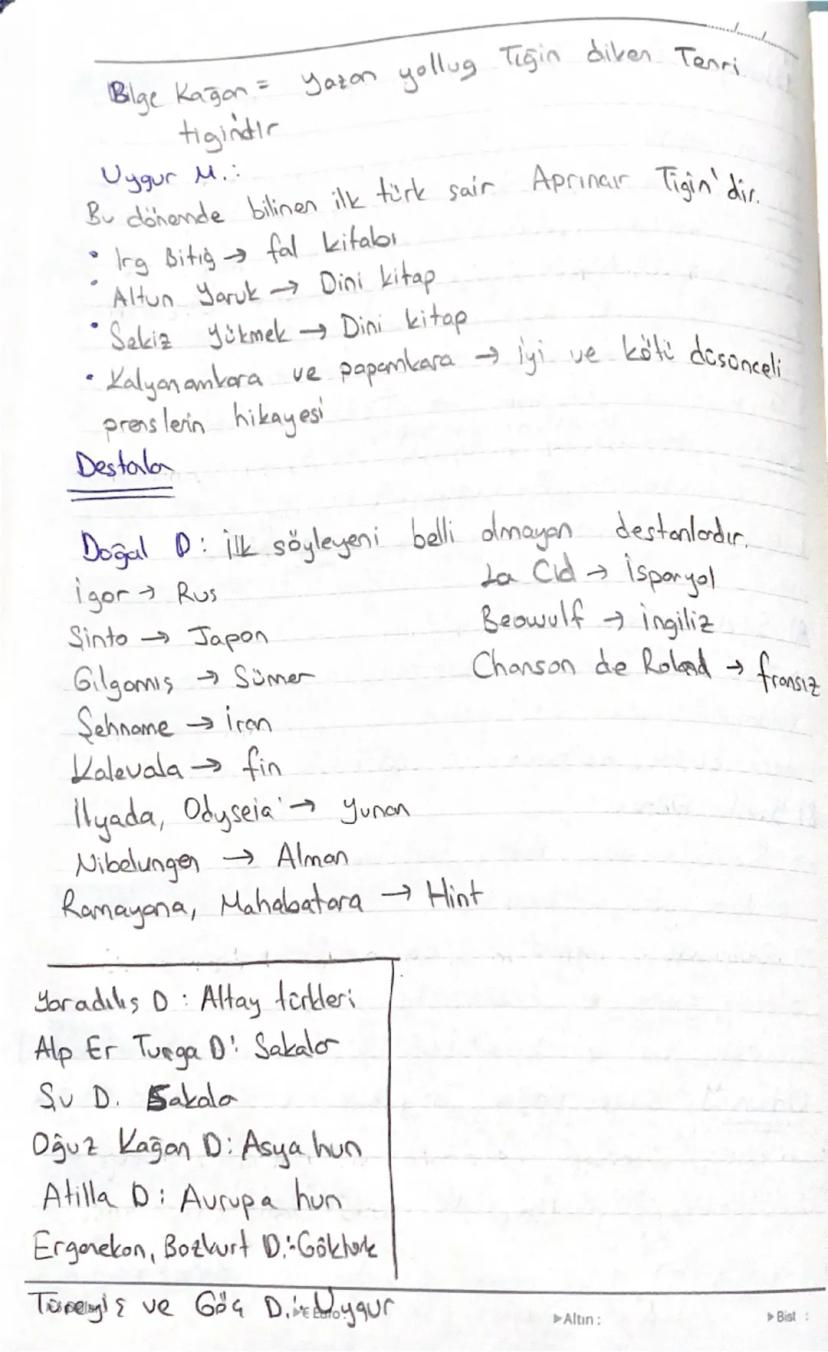 Bilge Kağan = yazan yollug Tigin diken Tenri
tigindir
Uygur M.:
Bu dönemde bilinen ilk türk sair Aprınçır Tigin'dir.
• Irg Bitig → fal kitabı
• Altun Yaruk → Dini kitap
• Sekiz Yükmek → Dini kitap
• Kalyanamkara ve papamkara → iyi ve kötü düsünceli
prenslerin hikayesi
Destalar
Doğal D: ilk söyleyeni belli olmayan destanlardır.
igor → Rus
Şinto → Japon
Gılgamış → Sümer
Şehname → iran
Kalevala → fin
Ilyada, Odyseia → yunan
Nibelungen → Alman
Ramayana, Mahabatara → Hint
La Cid → ispanyol
Beowulf → ingiliz
Chanson de Roland → fransız
Yaradılış D: Altay türkleri
Alp Er Tunga D: Sakalar
Şu D. Sakala
Oğuz Kağan D: Asya hun
Atilla D: Avrupa hun
Ergenekon, Bozkurt D.: Göktürk
Türeyiş ve Göç D.: Uygur
▶Altın :
▶Bist :